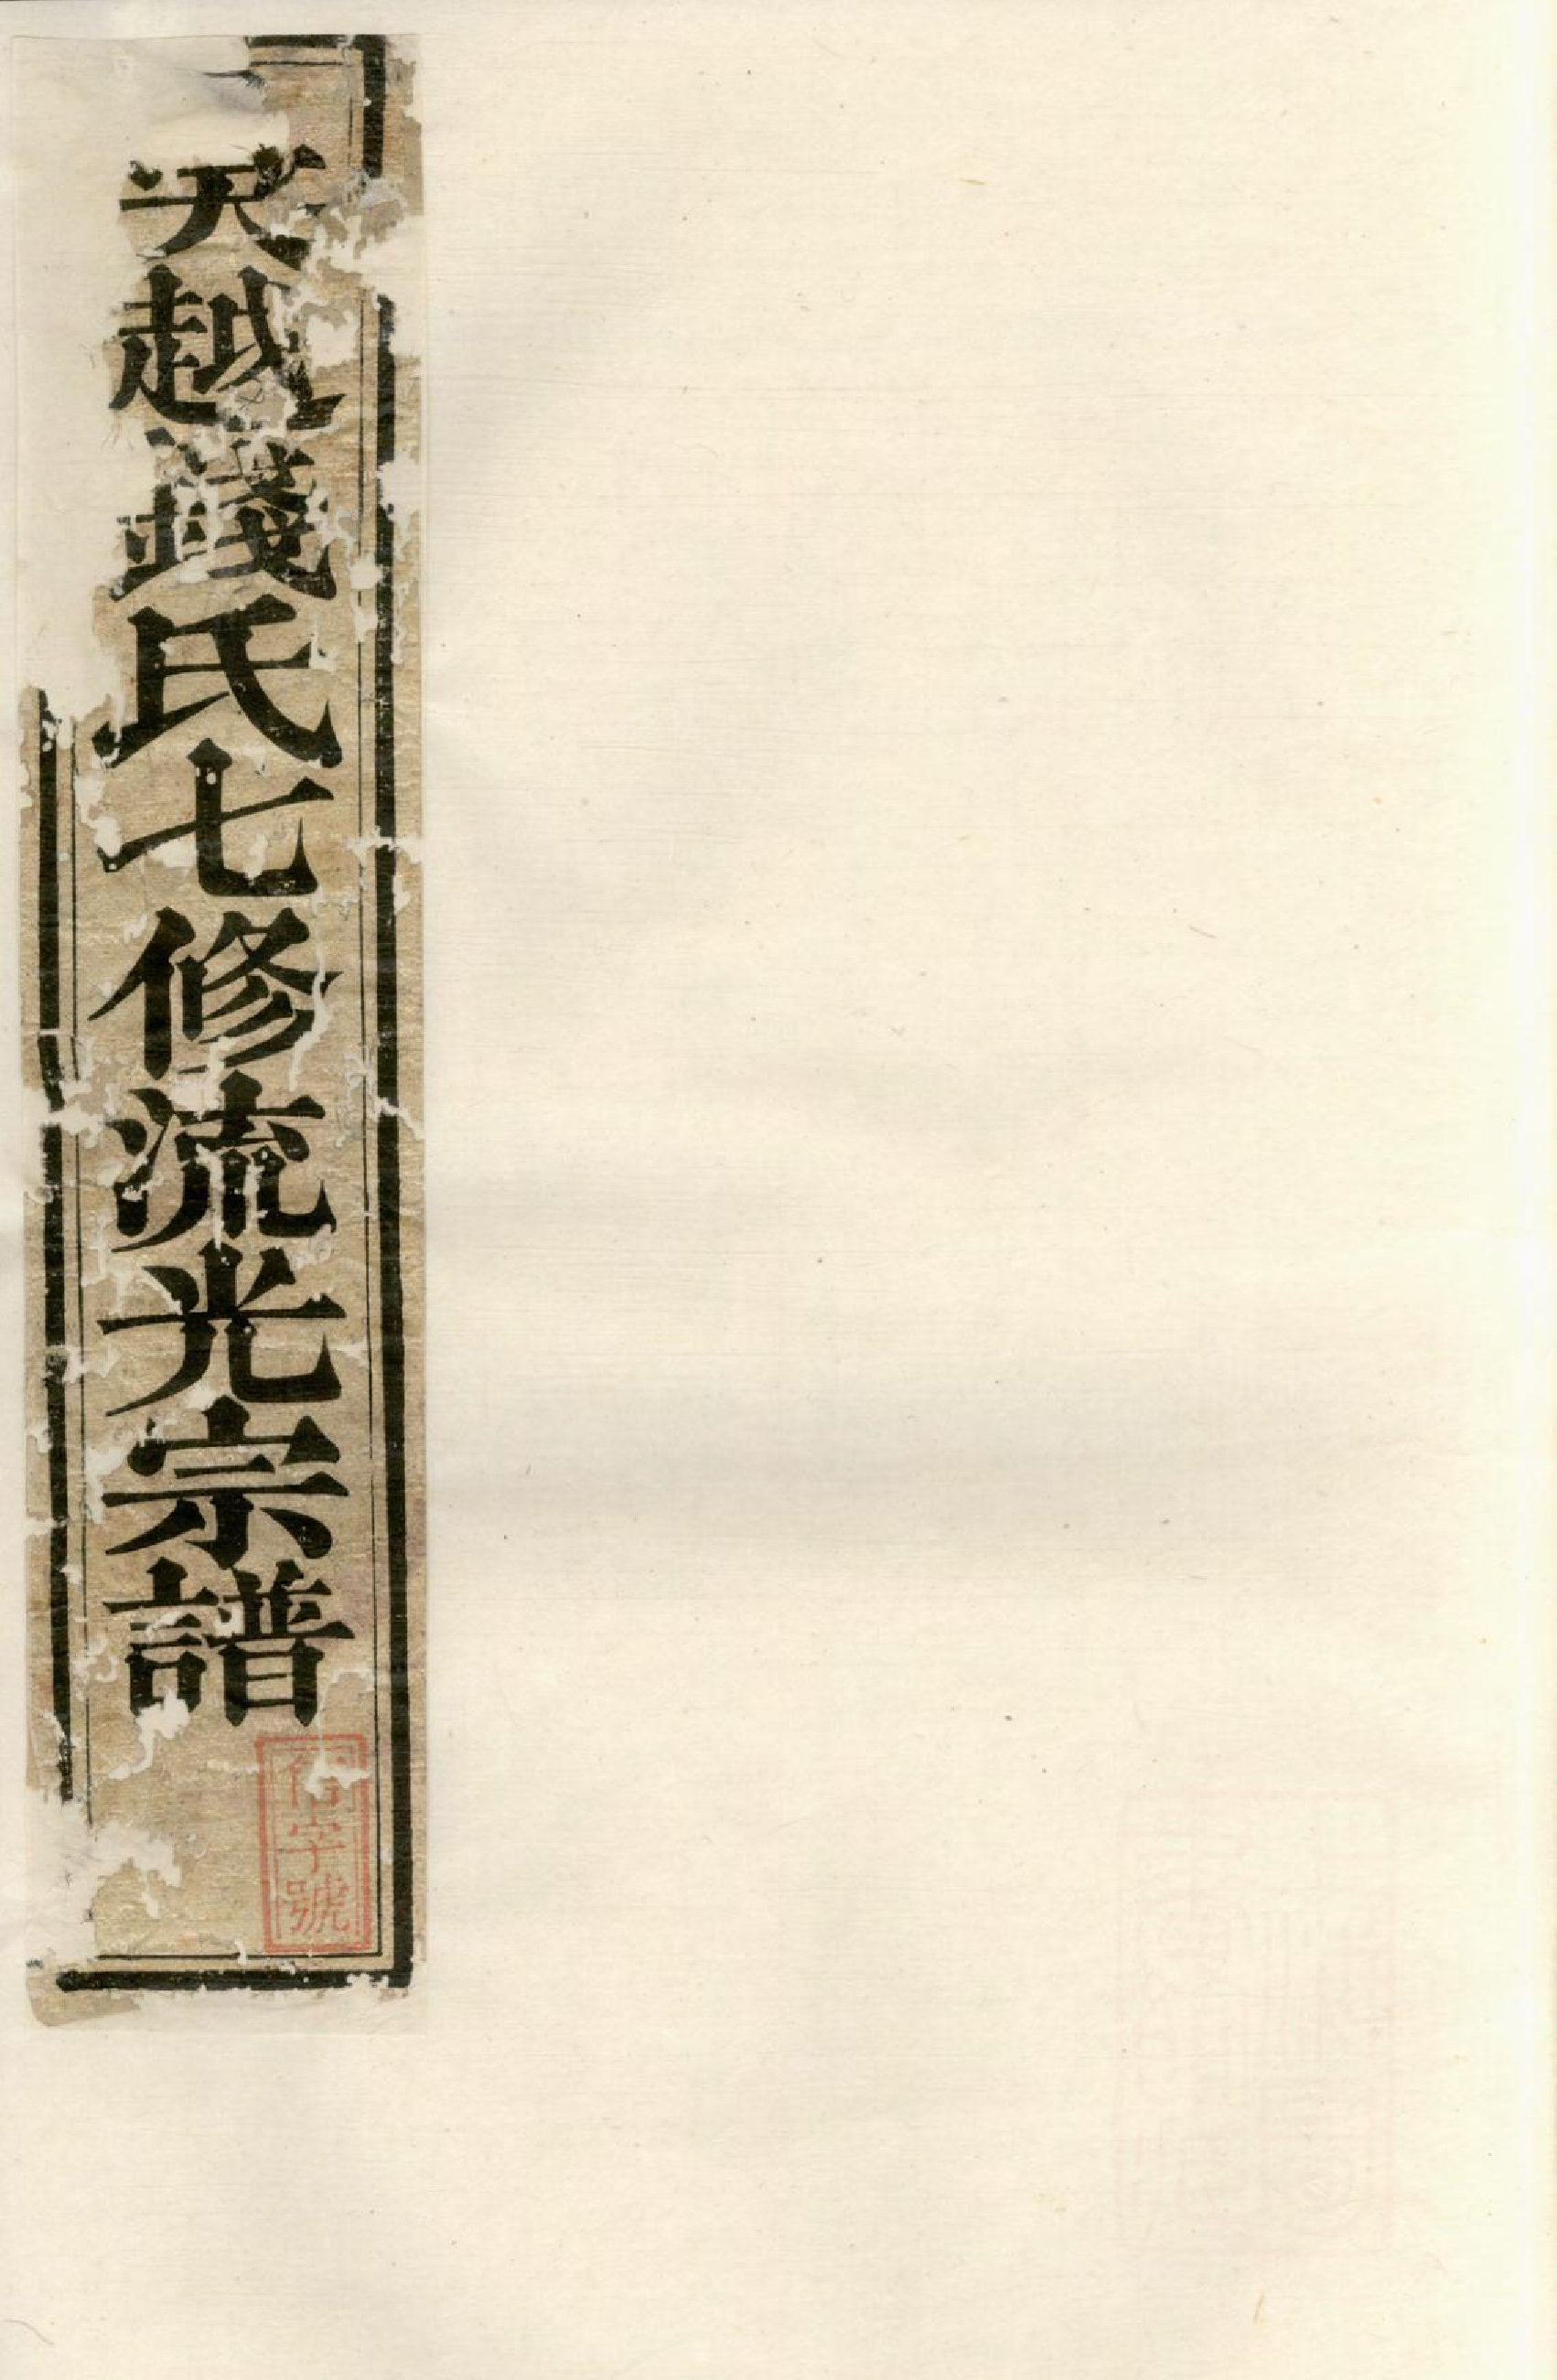 越錢氏七修流光宗譜
字號